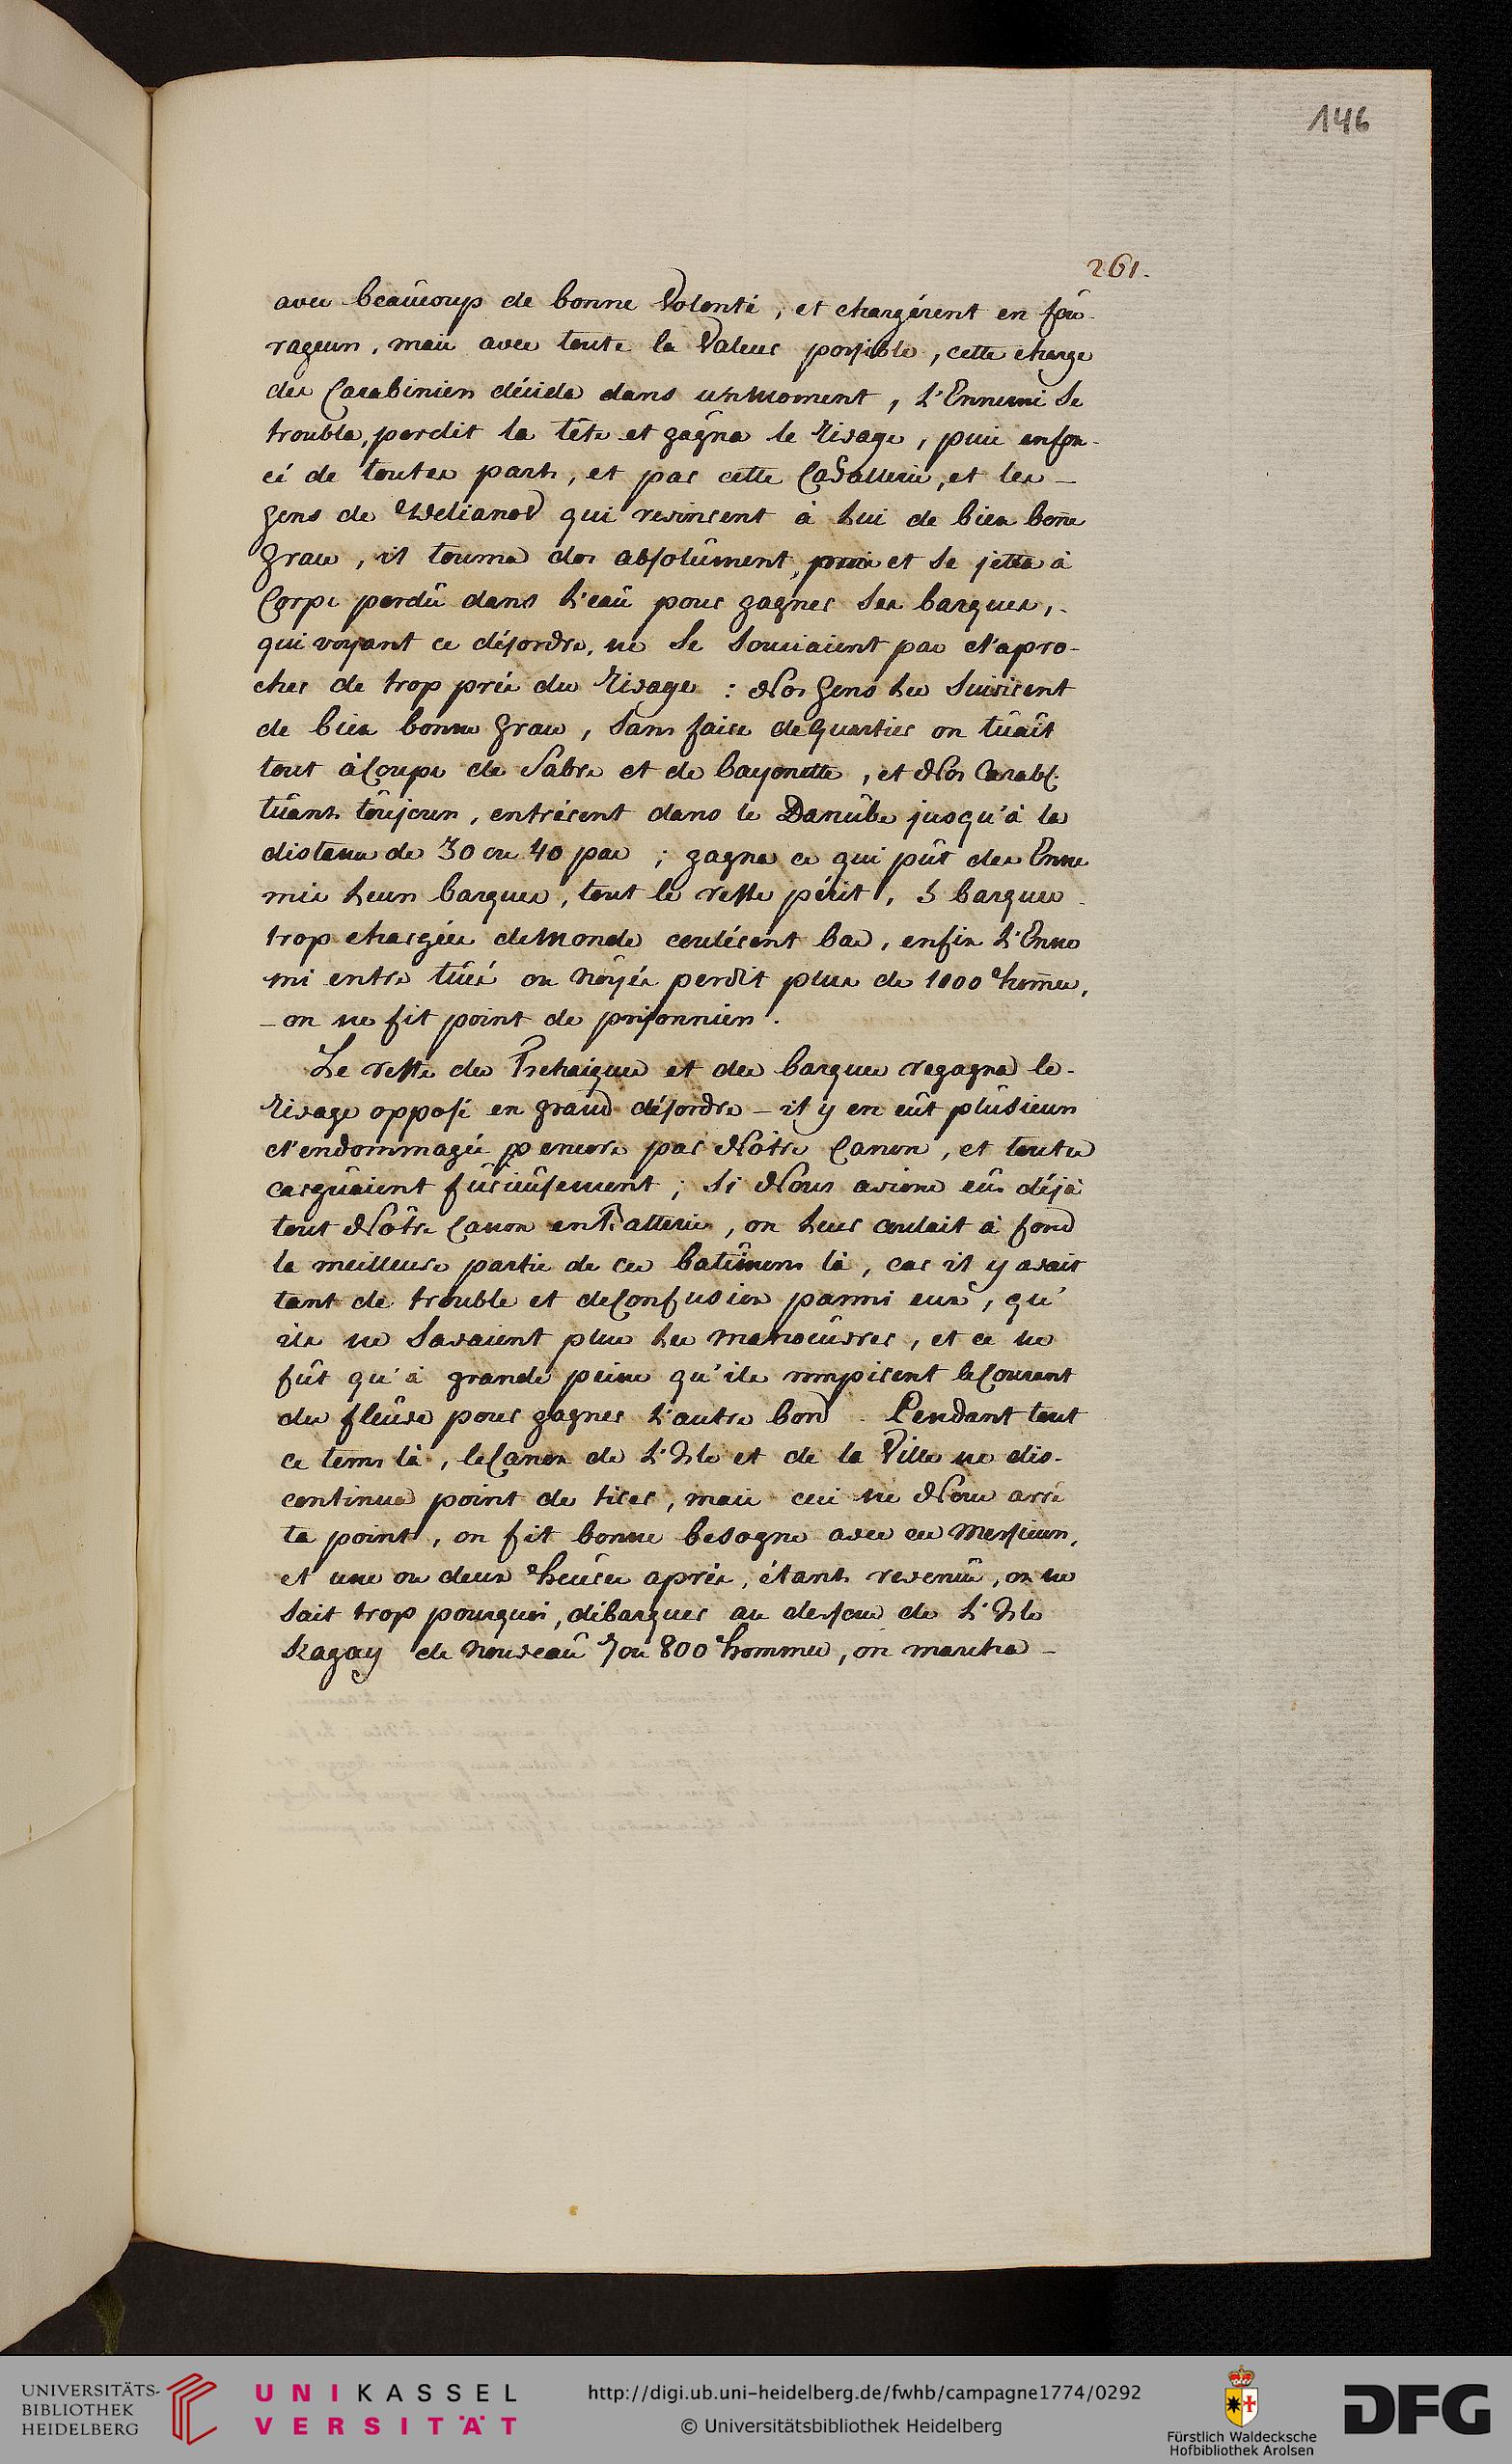 146
261.
avec beaûcoup de bonne Volonté, et chargérent en foû-
rageurs, mais avec toute la Valeur possible, cette charge
des Carabiniers décida dans un Moment, L'Ennemi Se
troubla, perdit la tête et gâgna le Rivage, puis enfon-
cé de toutes parts, et par cette Cavallerie, et les –
gens de Welianov qui revinrent à Lui de bien bon̄e
Grace, il tourna dos absolûment, et Se jetta à
Corps perdû dans L'eaû pour gagner Ses barques, -
qui voyant ce désordre, ne Se Souciaient pas d'apro-
cher de trop près du Rivage : Nos Gens Les Suivirent
de bien bonne Grace, Sans faire de Quartier on tûaît
tout à Coups de Sabre et de bayonette, et Nos Carabl:
tûants toûjours, entrérent dans le Danûbe jusqu'à la
distance de 30 ou 40 pas ; gagna ce qui pût des Enne
mis Leurs barques, tout le reste périt, 3 barques -
trop chargées de Monde coulérent bas, enfin L'Enne
mi entre tûés ou Nöyés perdit plus de 1000 hom̄es,
– on ne fit point de prisonniers.
Le reste des Tschaiques et des barques regagna le -
Rivage opposé en grand désordre – il y en eût plûsieurs
d'endommagés encore par Nôtre Canon, et toutes
carguaient fûrieûsement ; Si Nous avions eûs déjà
tout Nôtre Canon en Batterie, on Leur coulait à fond
la meilleure partie de ces batîmens là, car il y avait
tant de trouble et de Confusion parmi eux, qu'
ils ne Savaient plus Les manoeûvrer, et ce ne
fût qu'à grande peine qu'ils rompirent le Courent
du fleûve pour gagner L'autre bord. Pendant tout
ce tems là, le Canon de L'Isle et de la Ville ne dis-
continua point de tirer, mais ceci ne Nous arrê
ta point, on fit bonne besogne avec ces Messieurs,
et une ou deux heûres après, étants revenûs, on ne
Sait trop pourquoi, débarquer au dessous de L'Isle
Kagay de Nouveaû 7 ou 800 hommes, on marcha –
UNIVERSITÄTS-
BIBLIOTHEK
HEIDELBERG
UNIKASSEL
VERSITÄT
http://digi.ub.uni-heidelberg.de/fwhb/campagne1774/0292
© Universitätsbibliothek Heidelberg
Fürstlich Waldecksche
Hofbibliothek Arolsen
DFG